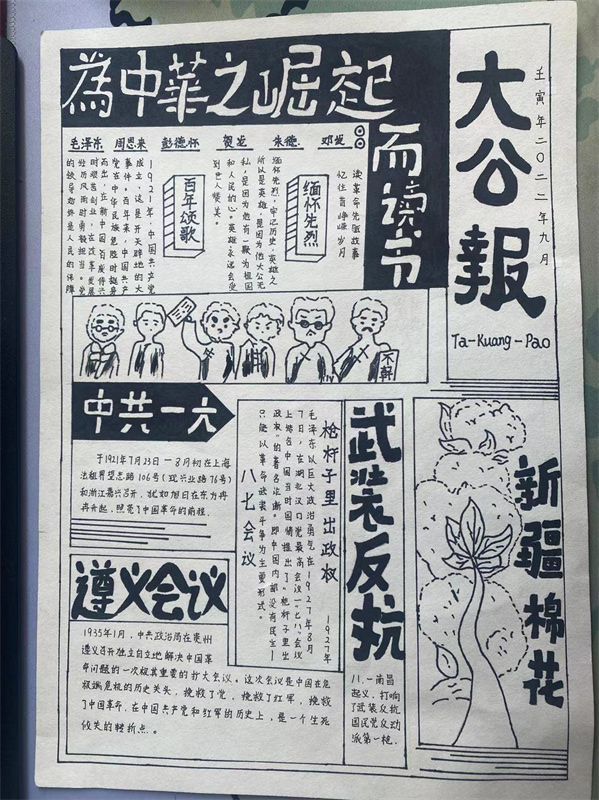 為中華之崛起
而读书
大公報
壬寅年二〇二二年九月
Ta-Kuang-Pao
毛泽东 周恩来 彭德怀 贺龙 朱德 邓发
读革命先驱故事
记住百峥嵘岁月
缅怀先烈
缅怀先烈，牢记历史，英雄之
所以是英雄，是因为他大公无
私，是因为他有一颗为祖国
和人民的心。英雄永远会受
到世人赞美。
百年颂歌
1921年，中国共产党
成立，这是开天辟地的大
事件。百年来，中国共产
党在中华民族危难时挺身
而出，在新中国百废待兴
时艰苦创业，在改革发展
经历风雨时勇毅担当。党
的领导始终是人民的保障
中共一大
于1921年7月23日—8月初在上海
法租界望志路106号(现兴业路76号)
和浙江嘉兴召开，犹如旭日在东方冉
冉升起，照亮了中国革命的前程。
枪杆子里出政权
1927年
毛泽东以巨大政治勇气在1927年8月
7日，在湖北汉口党最高会议“七八”会议
上结合中国当时国情提出了“枪杆子里出
政权”的著名论断。即中国内部没有民主，
只能以革命武装斗争为主要形式。
八七会议
武装反抗
八一南昌
起义，打响
了武装反抗
国民党反动
派第一枪.
遵义会议
1935年1月，中共政治局在贵州
遵义召开独立自主地解决中国革
命问题的一次极其重要的扩大会议。这次会议是中国在危
极端危机的历史关头，挽救了党，挽救了红军，挽救
了中国革命，在中国共产党和红军的历史上，是一个生死
攸关的转折点.。
新疆棉花